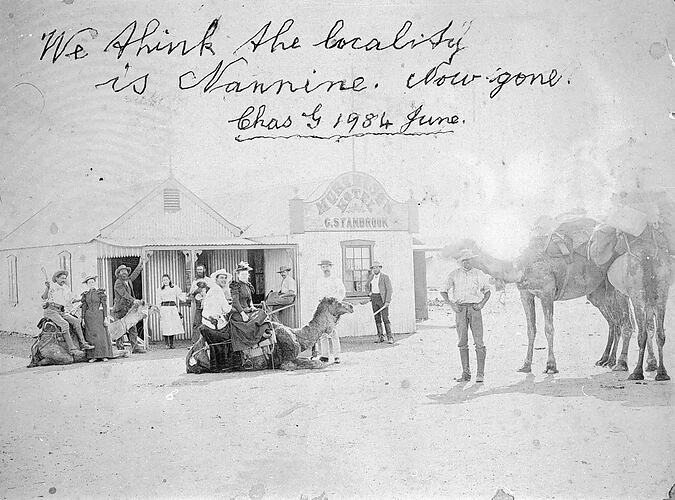 We think the locality
is Nannine. Now gone.
Chas G 1984 June.
HOTEL
G. STANBROOK